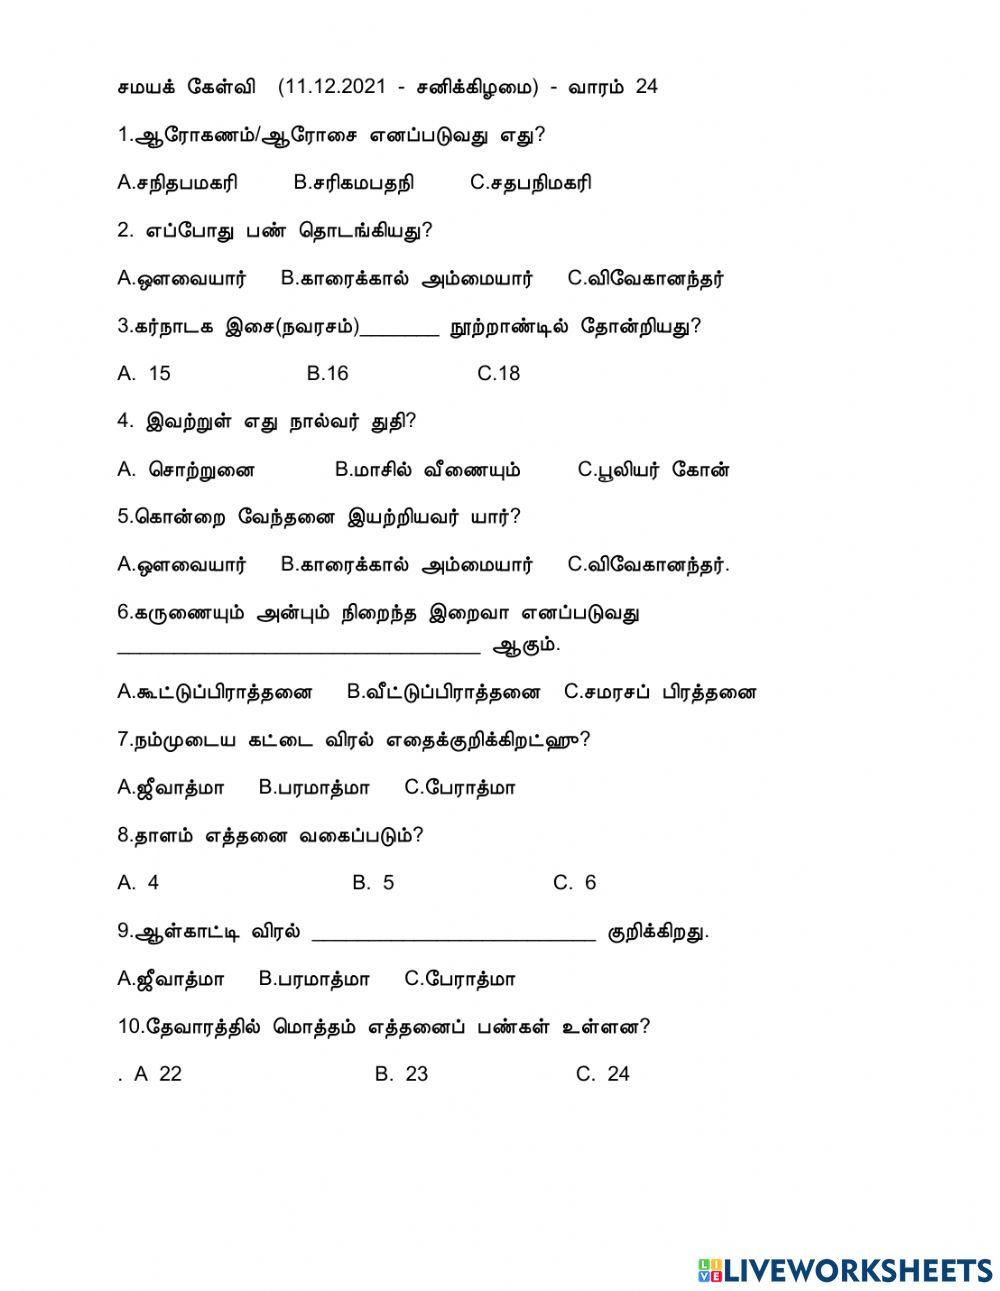 சமயக் கேள்வி (11.12.2021 - சனிக்கிழமை) - வாரம் 24
1.ஆரோகணம்/ஆரோசை எனப்படுவது எது?
A.சநிதபமகரி B.சரிகமபதநி C.சதபநிமகரி
2. எப்போது பண் தொடங்கியது?
A.ஔவையார் B.காரைக்கால் அம்மையார் C.விவேகானந்தர்
3.கர்நாடக இசை(நவரசம்)_______ நூற்றாண்டில் தோன்றியது?
A. 15 B.16 C.18
4. இவற்றுள் எது நால்வர் துதி?
A. சொற்றுனை B.மாசில் வீணையும் C.பூலியர் கோன்
5.கொன்றை வேந்தனை இயற்றியவர் யார்?
A.ஔவையார் B.காரைக்கால் அம்மையார் C.விவேகானந்தர்.
6.கருணையும் அன்பும் நிறைந்த இறைவா எனப்படுவது
________________________________ ஆகும்.
A.கூட்டுப்பிராத்தனை B.வீட்டுப்பிராத்தனை C.சமரசப் பிரத்தனை
7.நம்முடைய கட்டை விரல் எதைக்குறிக்கிறட்ஹு?
A.ஜீவாத்மா B.பரமாத்மா C.பேராத்மா
8.தாளம் எத்தனை வகைப்படும்?
A. 4 B. 5 C. 6
9.ஆள்காட்டி விரல் _________________________ குறிக்கிறது.
A.ஜீவாத்மா B.பரமாத்மா C.பேராத்மா
10.தேவாரத்தில் மொத்தம் எத்தனைப் பண்கள் உள்ளன?
. A 22 B. 23 C. 24
LIVE LIVEWORKSHEETS